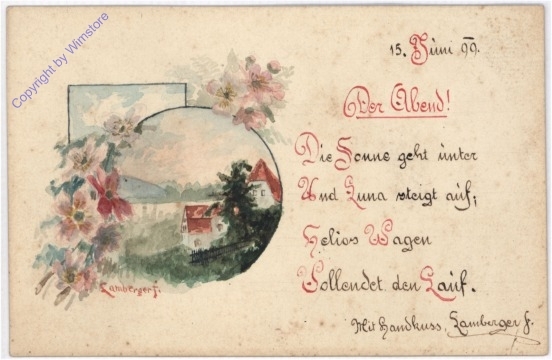 Copyright by Wimstore
15. Juni 99.
Der Abend!
Die Sonne geht unter
Und Luna steigt auf;
Helios Wagen
Vollendet den Lauf.
Mit Handkuss, Lamberger f.
Lamberger f.